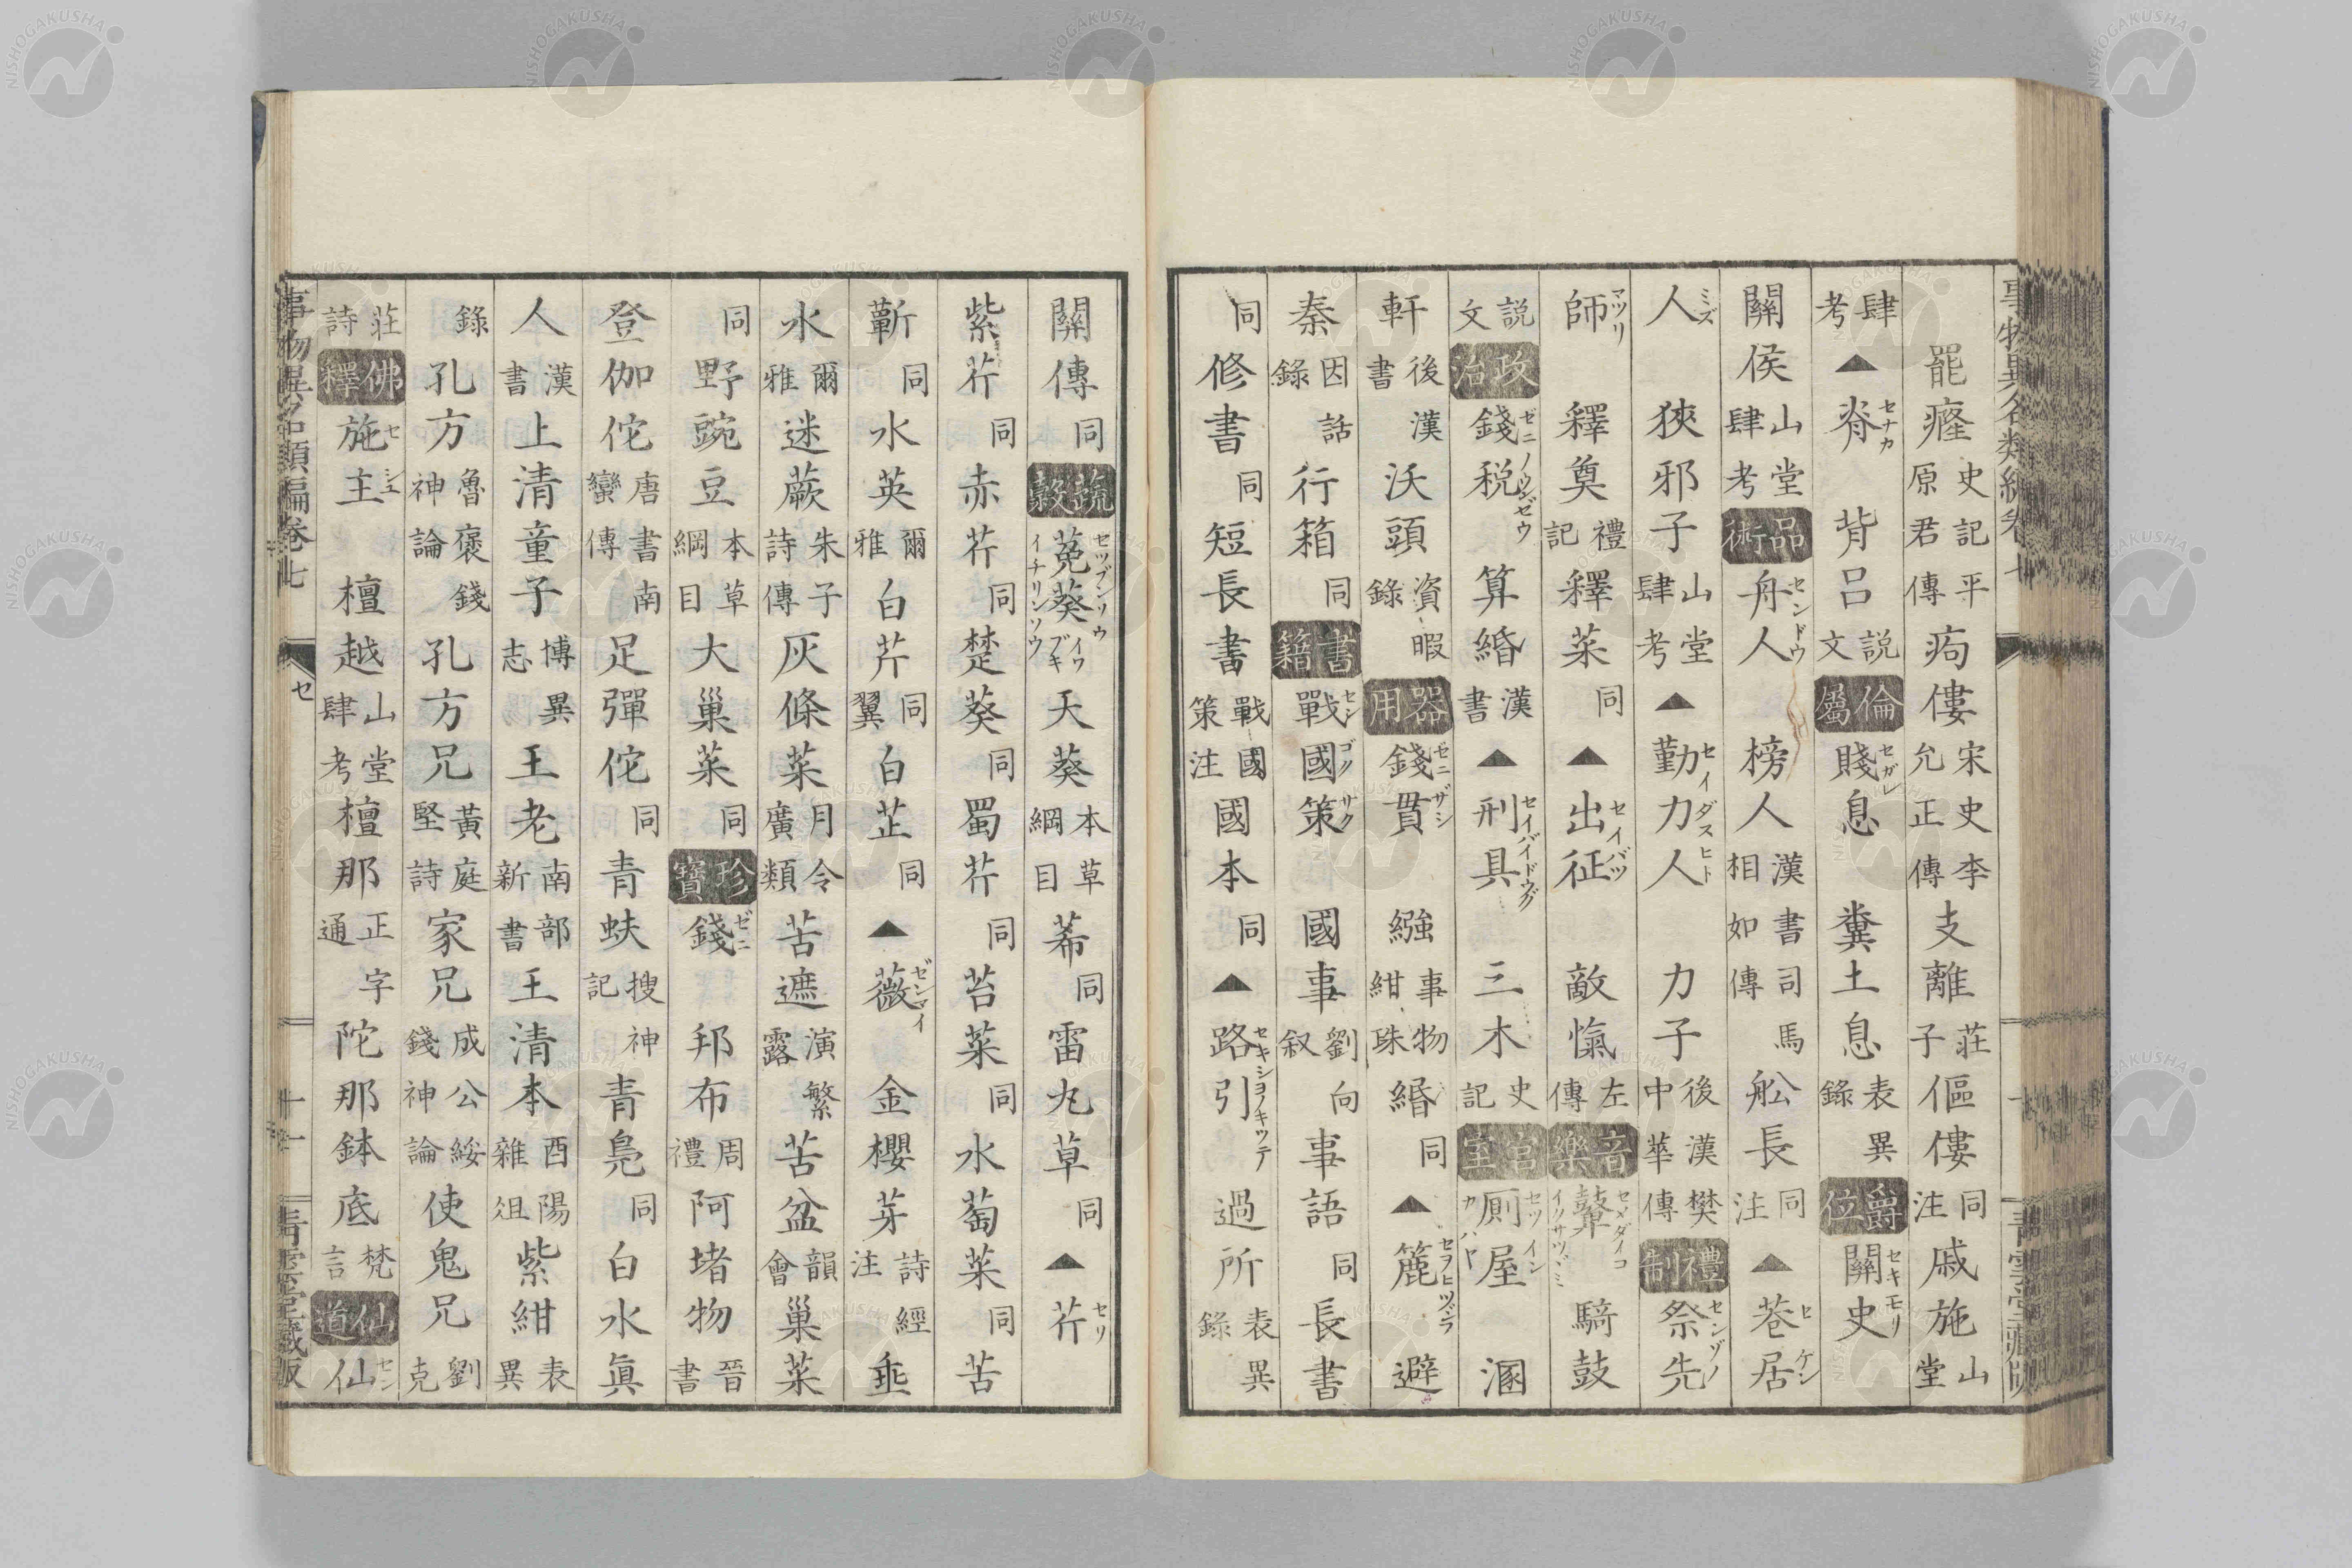 罷癃 史記平原君傳 痀僂 宋史李允正傳 支離 莊子 傴僂 同注 戚施 山堂
肆考 ▲ 脊セナカ 背呂 説文 倫屬 賤息セガレ 糞土息 表異錄 爵位 關史セキモリ
關侯 山堂肆考 品術 舟人センドウ 榜人 漢書司馬相如傳 舩長 同注 ▲ 巷居セケン
人ミズ 狹邪子 山堂肆考 ▲ 勤力人セイダスヒト 力子 後漢樊中華傳 禮制 祭先センゾノ
師マツリ 釋奠 禮記 釋菜 同 ▲ 出征セイバツ 敵愾 左傳 音樂 鼙セメダイコ イクサツヾミ 騎鼓
説文 政治 錢税ゼニノウンゼウ 算緡 漢書 ▲ 刑具セイバイドウグ 三木 史記 宮室 厠屋セツイン カハヤ 溷
軒 後漢書 沃頭 資暇錄 器用 錢貫ゼニザシ 繦 事物紺珠 緡 同 ▲ 簏セヲヒツヾラ 避
秦 因話錄 行箱 同 書籍 戰國策センゴクサク 國事 劉向叙 事語 同 長書
同 修書 同 短長書 戰國策注 國本 同 ▲ 路引セキシヨノキツテ 過所 表異錄
關傳 同 蔬穀 菟葵セツブンソウ イチリンソウ イワブキ 天葵 本草綱目 莃 同 雷丸草 同 ▲ 芹セリ
紫芹 同 赤芹 同 楚葵 同 蜀芹 同 苔菜 同 水萄菜 同 苦
蘄 同 水英 爾雅 白芹 同翼 白芷 同 ▲ 薇ゼンマイ 金櫻芽 詩經注 埀
水 爾雅 迷蕨 朱子詩傳 灰條菜 月令廣類 苦遮 演繁露 苦盆 韻會 巢菜
同 野豌豆 本草綱目 大巢菜 同 珍寶 錢ゼニ 邦布 周禮 阿堵物 晉書
登伽佗 唐書南蠻傳 足彈佗 同 青蚨 搜神記 青鳧 同 白水眞
人 漢書 上清童子 博異志 王老 南部新書 王清本 酉陽雜俎 紫紺 表異
錄 孔方 魯褒錢神論 孔方兄 黃庭堅詩 家兄 成公綏錢神論 使鬼兄 劉克
莊詩 佛釋 施主セシユ 檀越 山堂肆考 檀那 正字通 陀那鉢底 梵言 仙道 仙セン
事物異名類編卷七 セ 十一 青雲堂藏版